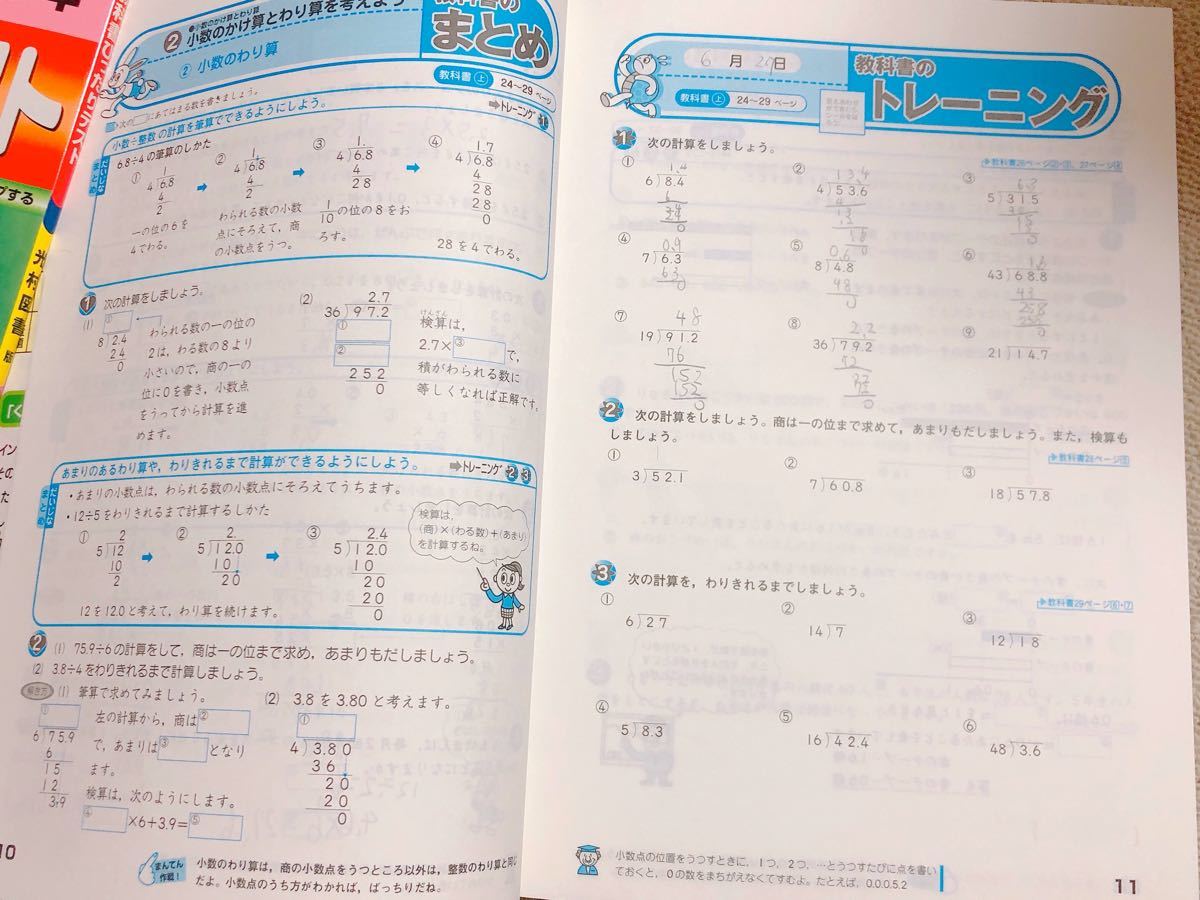 ト
教科書ぴったりテスト
プする
光村図書
版
「く
②
●小数のかけ算とわり算
小数のかけ算とわり算を考えよう
② 小数のわり算
教科書の
まとめ
教科書 上 24〜29 ページ
次の□にあてはまる数を書きましょう。
小数÷整数の計算を筆算でできるようにしよう。
トレーニング 1
だいじなまとめ
6.8÷4の筆算のしかた
①
1
4)6.8
4
2
一の位の6を
4でわる。
②
1.
4)6.8
4
2
わられる数の小数
点にそろえて、商
の小数点をうつ。
③
1.
4)6.8
4
28
1/10の位の8をお
ろす。
④
1.7
4)6.8
4
28
28
0
28を4でわる。
1 次の計算をしましょう。
(1)
①
8)2.4
24
0
わられる数の一の位の
2は、わる数の8より
小さいので、商の一の
位に0を書き、小数点
をうってから計算を進
めます。
(2)
2.7
36)97.2
①
②
252
0
けんざん
検算は、
2.7×③で、
積がわられる数に
等しくなれば正解です。
あまりのあるわり算や、わりきれるまで計算ができるようにしよう。
トレーニング 2 3
だいじなまとめ
・あまりの小数点は、わられる数の小数点にそろえてうちます。
・12÷5をわりきれるまで計算するしかた
①
2
5)12
10
2
②
2.
5)12.0
10
20
③
2.4
5)12.0
10
20
20
0
12を12.0と考えて、わり算を続けます。
検算は、
(商)×(わる数)+(あまり)
を計算するね。
2 (1) 75.9÷6の計算をして、商は一の位まで求め、あまりもだしましょう。
(2) 3.8÷4をわりきれるまで計算しましょう。
解き方 (1) 筆算で求めてみましょう。
①
6)75.9
6
15
12
3.9
左の計算から、商は②
で、あまりは③となり
ます。
検算は、次のようにします。
④×6+3.9=⑤
(2) 3.8を3.80と考えます。
①
4)3.80
36
20
20
0
10
まんてん
作戦!
小数のわり算は、商の小数点をうつところ以外は、整数のわり算と同じ
だよ。小数点のうち方がわかれば、ばっちりだね。
6月29日
教科書 上 24〜29 ページ
教科書の
トレーニング
1 次の計算をしましょう。
教科書26ページ②・③、27ページ④
①
1.4
6)8.4
6
24
24
0
②
13.4
4)53.6
4
13
16
0
③
6.3
5)31.5
15
0
④
0.9
7)6.3
63
0
⑤
0.6
8)4.8
48
0
⑥
1.6
43)68.8
43
258
258
0
⑦
48
19)91.2
76
152
152
0
⑧
2.2
36)79.2
72
0
⑨
21)14.7
2 次の計算をしましょう。商は一の位まで求めて、あまりもだしましょう。また、検算も
しましょう。
教科書28ページ⑤
①
3)52.1
②
7)60.8
③
18)57.8
3 次の計算を、わりきれるまでしましょう。
教科書29ページ⑥・⑦
①
6)27
②
14)7
③
12)18
④
5)8.3
⑤
16)42.4
⑥
48)3.6
小数点の位置をうつすときに、1つ、2つ、…とうつすたびに点を書い
ておくと、0の数をまちがえなくてすむよ。たとえば、0.0.0.5.2
11